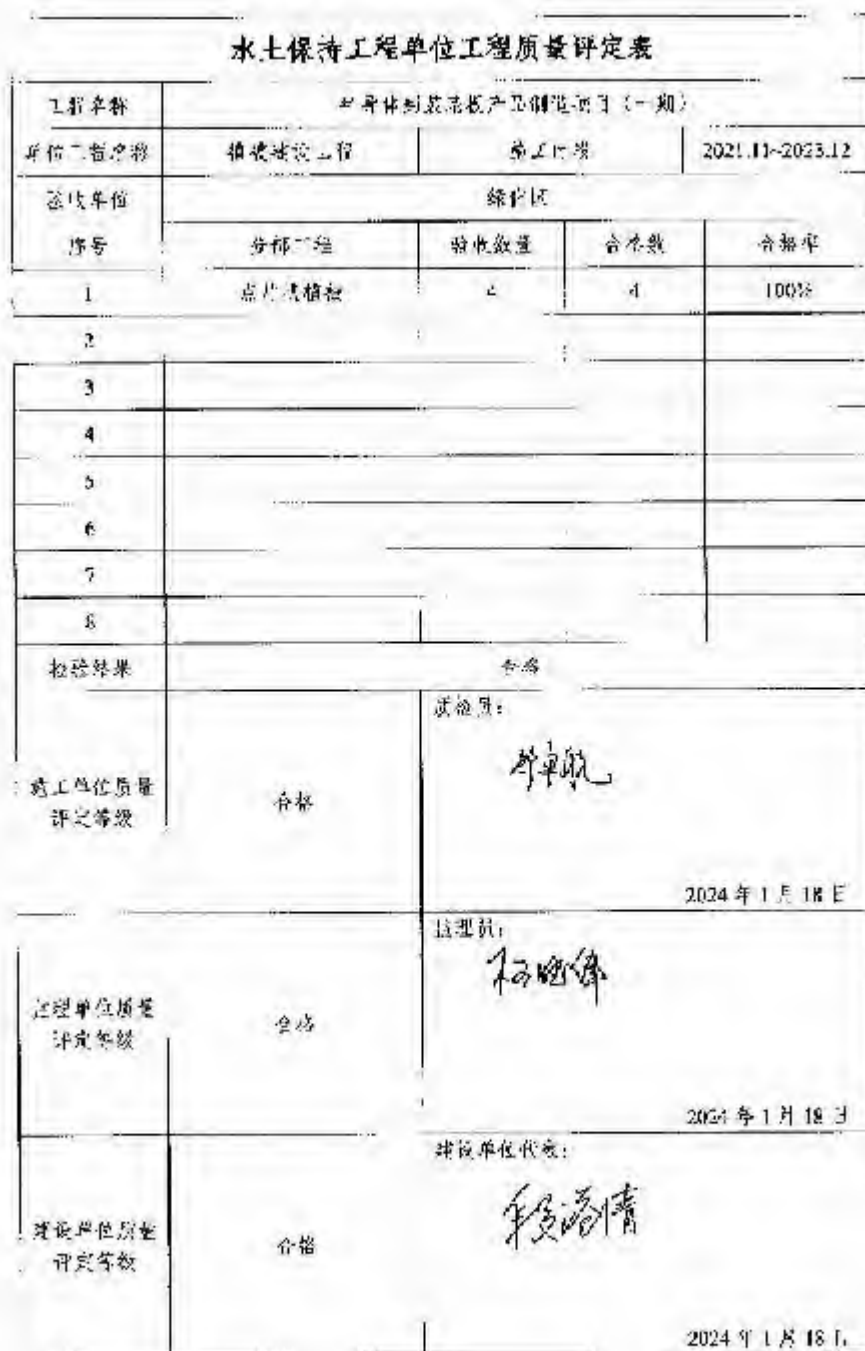 水土保持工程单位工程质量评定表
工程名称 半导体封装基板产品制造项目(一期)
单位工程名称 植被建设工程 施工时段 2021.11~2023.12
验收单位 绿化区
序号 分部工程 验收数量 合格数 合格率
1 点片状植被 4 4 100%
2
3
4
5
6
7
8
检验结果 合格
质检员:
施工单位质量
评定等级 合格
2024年1月18日
监理员:
监理单位质量
评定等级 合格
2024年1月18日
建设单位代表:
建设单位质量
评定等级 合格
2024年1月18日